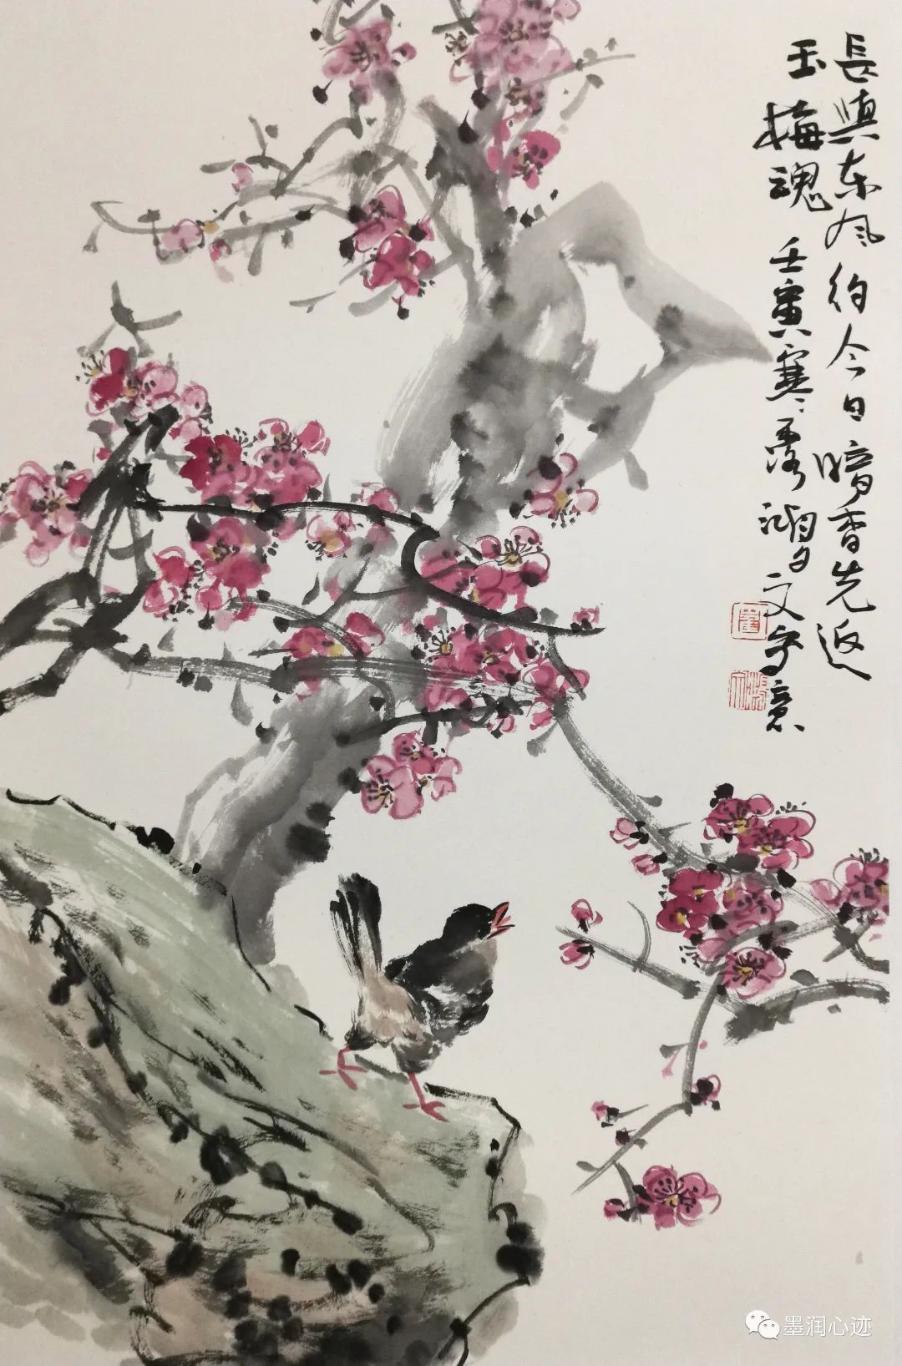 長與东风约今日暗香先返
玉梅魂 壬寅寒露湖夕文宇意
墨润心迹